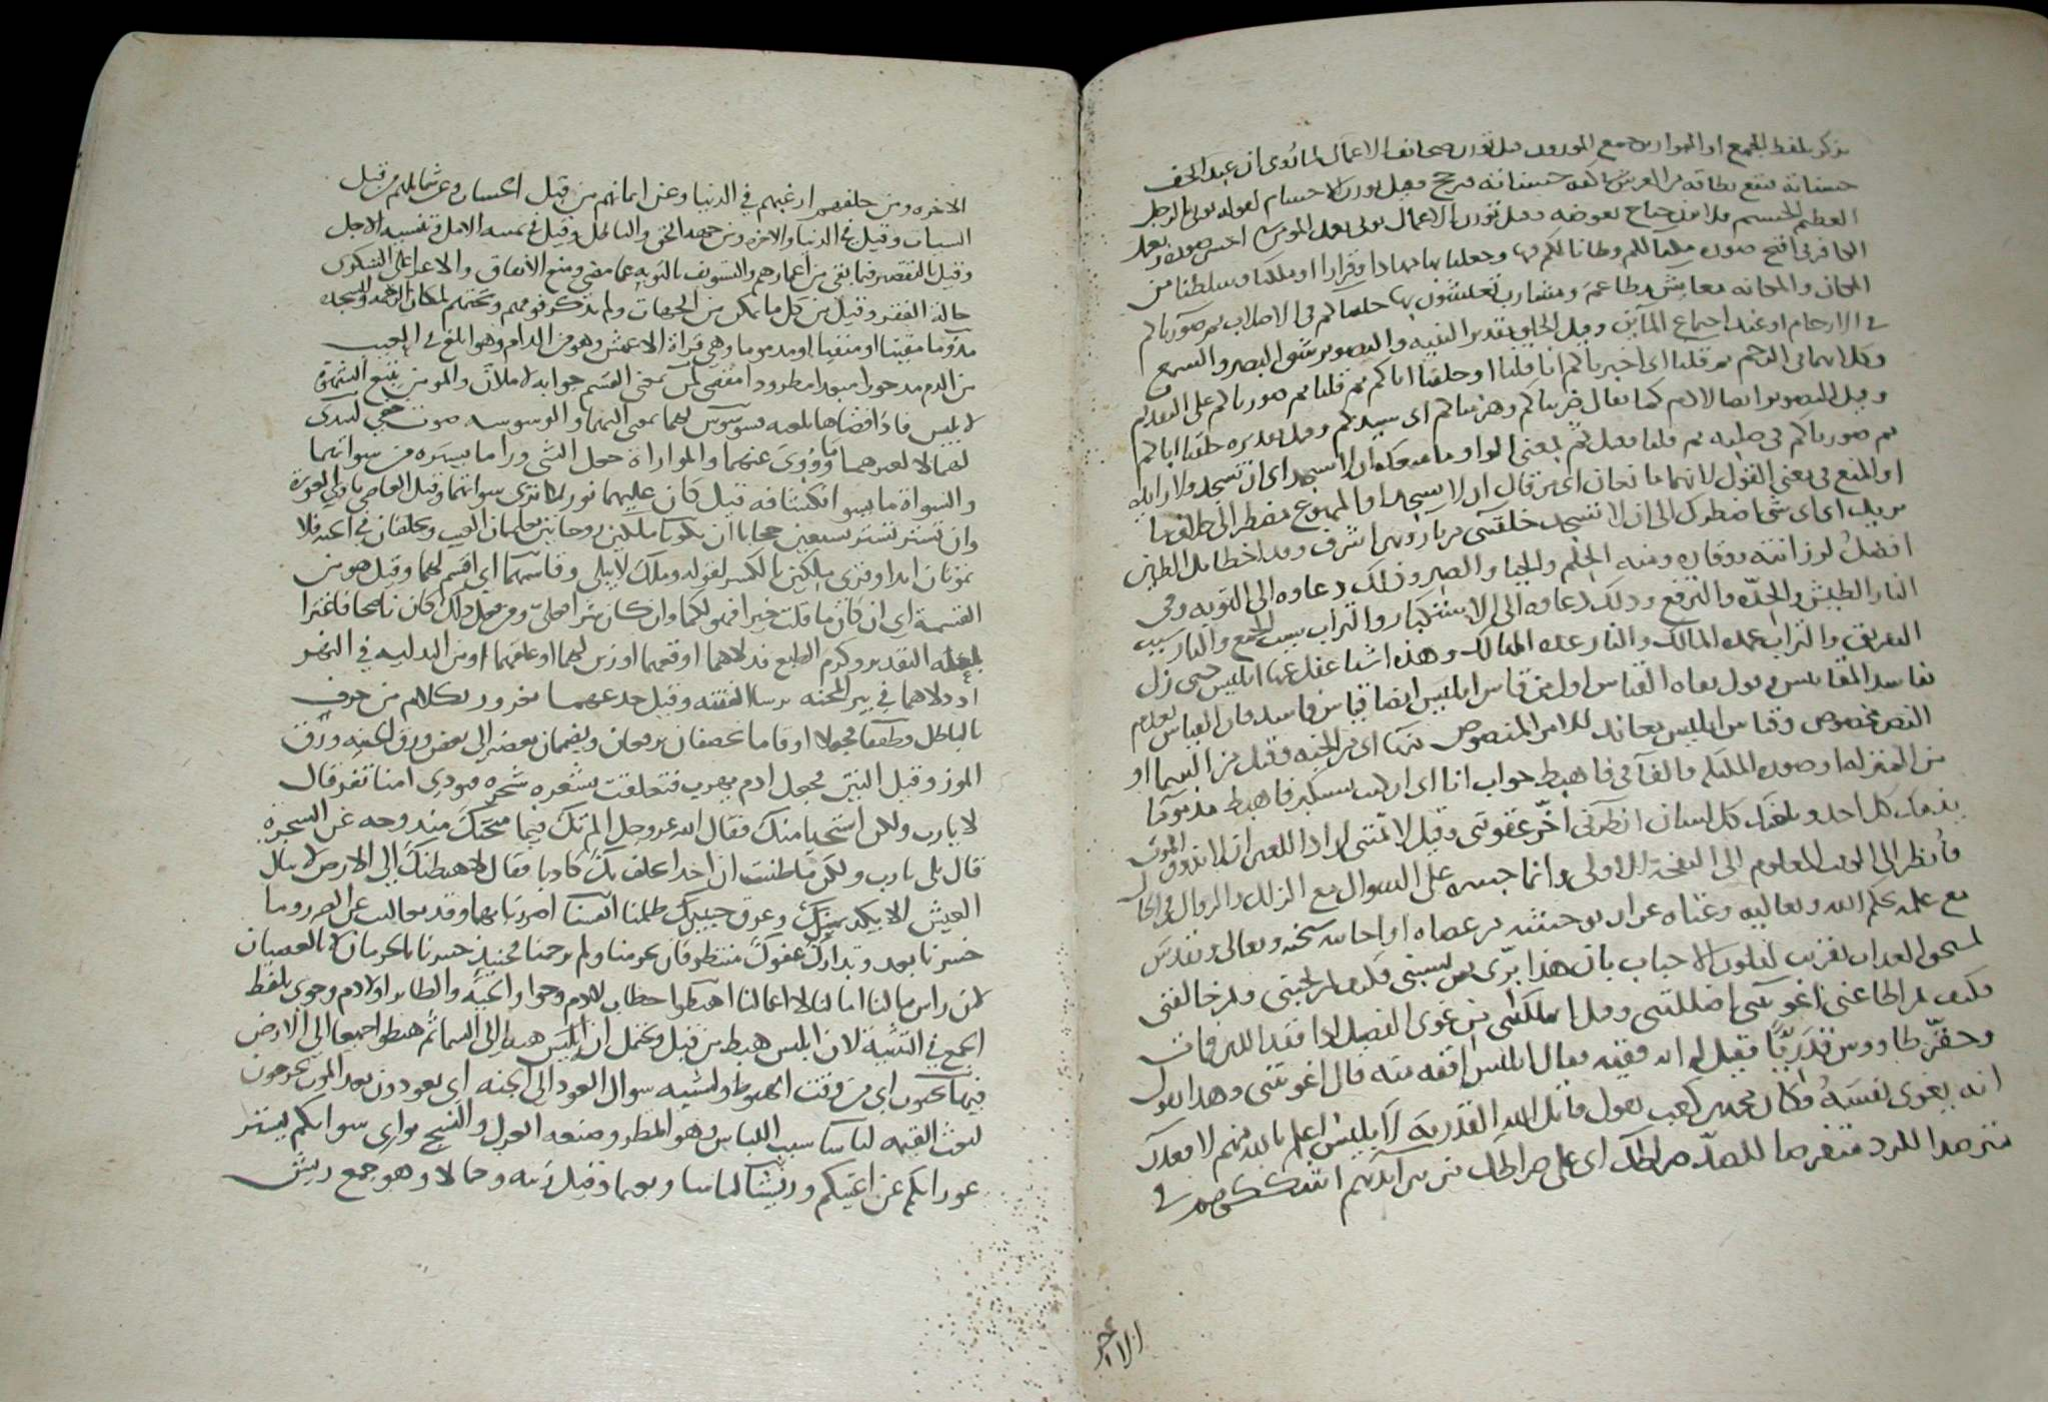 يذكر بلفظ الجمع او الموازين جمع الموزون قيل توزن صحائف الاعمال لما روى ان عبدا تخف
حسناته فتقع بطاقة من العرش بالكفه حسناته فترجح وقيل يوزن الاجسام لقوله يوتى بالرجل
العظيم الجسيم فلا يزن جناح بعوضه وقيل توزن الاعمال يوتى بعمل المومن احسن صورة وبعمل
الكافر في اقبح صوره مكناكم وطانا لكم فيها وجعلناها مهادا وقرارا او ملكنا وسلطنا من
المكان والمكانه معايش مطاعم ومشارب تعيشون بها خلقناكم في الاصلاب ثم صورناكم
في الارحام او عند اجتماع المائين وقيل الخلق تقدير البنيه والتصوير شق البصر والسمع
وكلاهما في الرحم ثم قلنا اى اخبرناكم انا قلنا او خلقنا اباكم ثم قلنا ثم صورناكم على التقديم
وقيل التصوير ايضا لادم كما يقال ضربناكم وهزمناكم اى سيدكم وقيل تقديره خلقنا اباكم
ثم صورناكم في صلبه ثم قلنا وقيل ثم بمعنى الواو ما منعك ان لا تسجد اى ان تسجد ولا زايده
او المنع في معنى القول لانهما ما نعان اى من قال ان لا تسجد او الممنوع مضطر الى خلاف ما
يريد اى اى شى اضطرك الى ان لا تسجد خلقتنى من نار ونورى اشرف وقد اخطا بل الطين
افضل لرزانته ووقاره ومنه الحلم والحيا والصبر وذلك دعاوه الى التوبه وفى
النار الطيش والحده والترفع وذلك دعاوه الى الاستكبار والتراب سبب الجمع والنار سبب
التفريق والتراب عده المالك والنار عده المهالك وهذه اشيا غفل عنها ابليس حتى زل
بفاسد المقاييس وقول نفاة القياس اول من قاس ابليس ايضا قياس فاسد فان القياس لعدم
النص مخصوص وقياس ابليس معاند للامر المنصوص منها اى من الجنه وقيل من السما او
من المنزله او صوره الملكيه والفا في فاهبط جواب انا اى ان كنت تتكبر فاهبط مذموما
يذمك كل احد ويلعنك كل لسان انظرنى اخر عقوبتى وقيل لا تمتنى اراد اللعين ان لا يذوق الموت
فانظر الى الوقت المعلوم الى النفخه الاولى وانما جسره على السوال مع الزلل والزوال في الحال
مع علمه بحكم الله وتعاليه وغناه عن ان يوحشه من عصاه او اجابه سبحانه وتعالى وتقدس
لمستحق العذاب تقريب لقلوب الاحباب بان هذا برى بمن يسبنى فكيف بمن يحبنى ولم يخالفنى
فكيف بمن اطاعنى اغويتنى اضللتنى وقيل اهلكتنى من غوى الفصيل اذا فقد اللبن فمات
وحضر طاووس قدريا فقيل له انه فقيه فقال ابليس افقه منه قال اغويتنى وهذا يقول
انه يغوى نفسه وكان محمد بن كعب يقول قاتل الله القدريه لابليس اعلم بالله منهم لاقعدن
مترصدا للرد متعرضا للصد صراطك اى على صراطك من بين ايديهم اشككهم في
الاخره
الاخره ومن خلفهم ارغبهم في الدنيا وعن ايمانهم من قبل الحسنات وعن شمايلهم من قبل
السيات وقيل في الدنيا والاخره ومن جهه الحق والباطل وقيل في تمنيه الامل وتنسيه الاجل
وقيل بالتقصير فيما بقى من اعمارهم والتسويف بالتوبه عما مضى ومنع الانفاق والاعراض عن الشكوى
حالة الفقر وقيل من كل ما يمكن من الجهات ولم يذكر فوقهم وتحتهم لمكان الرحمه والسجده
مذوما مقيتا او منفيا او مدموما وهي قراة الاعمش وهو من الدام وهو ابلغ في العيب
من الذم مدحورا مبعدا مطرودا مقصى لمن بمعنى القسم جوابه لاملان والمومن يتبع الشهوة
لا ابليس فاذا قضاها بلعنه فوسوس لهما بمعنى اليهما والوسوسه صوت خفى ليبدى
لهما لا لغيرهما ما وورى عنهما والمواراة جعل الشى ورا ما يستره من سواتهما
والسواة ما يسو انكشافه قيل كان عليهما نور لا ترى سواتهما وقيل العاصى بادى العورة
وان تستر تستر بسبعين حجابا ان تكونا ملكين روحانيين تعلمان الغيب وتخلفان في الجنه فلا
تموتان ابدا وقرى ملكين بالكسر لقوله وملك لا يبلى وقاسمهما اى اقسم لهما وقيل هو من
القسمة اى ان كان ما قلت خيرا فهو لكما وان كان شرا فعلى ومن فعل ذلك كان ناصحا فاغترا
بهذه التقدير وكرم الطبع فدلاهما اوقعهما او زين لهما او علقهما او من التدليه في البئر
اى دلاهما في بير المحنه برسا الفتنه وقيل خدعهما بغرور بكلام مزخرف
بالباطل وطفقا جعلا او قاما يخصفان يرقعان ويضمان بعضه الى بعض ورق الجنه ورق
الموز وقيل التين فجعل ادم يهرب فتعلقت بشعره شجره فنودى امنا تفر قال
لا يارب ولكن استحيا منك فقال الله عز وجل الم تك فيما منحتك مندوحه عن الشجره
قال بلى يارب ولكن ما ظننت ان احدا يحلف بك كاذبا فقال لاهبطنك الى الارض لا ينال
العيش الا بكد يمينك وعرق جبينك ظلمنا انفسنا اضررنا بها وقد تعاليت عن الضر وما
خسرنا بعد وتدارك عفوك منتظر فان عرمنا ولم ترحمنا فحينيذ خسرنا بالحرمان لا بالعصيان
لان راس مالنا امالنا لا اعمالنا اهبطوا خطاب لادم وحوا والحيه والطاوس او لادم وحوى بلفظ
الجمع في التثنية لان ابليس هبط من قبل ويحتمل ان ابليس هبط الى السما ثم هبطوا جميعا الى الارض
فيها تحيون اى من وقت الهبوط ولشبه سوال العود الى الجنه اى يعودون بعد الموت تخرجون
لبعث القيمه لباسا سبب اللباس وهو المطر وصنعه الغزل والنسج يوارى سواتكم يستر
عوراتكم عن اعينكم وريشا لباسا ونعما وقيل زينه وجمالا وهو جمع ريش